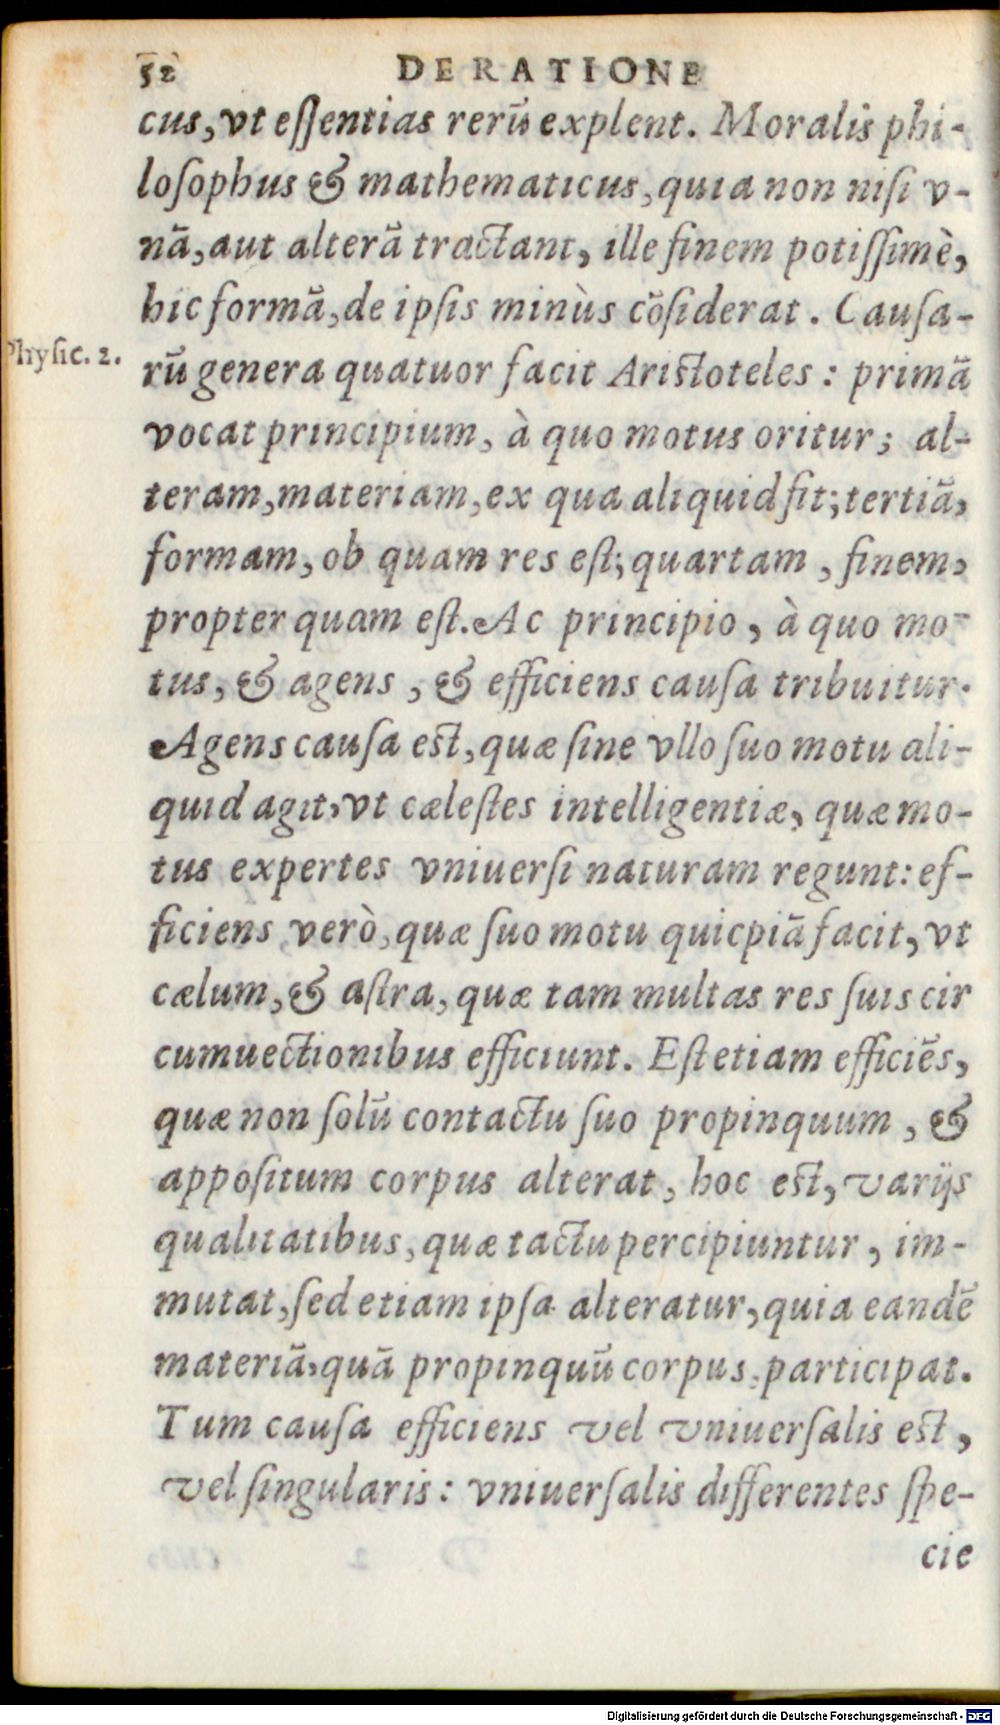 52 DE RATIONE
cus, vt eſſentias rerū explent. Moralis phi-
loſophus & mathematicus, quia non niſi v-
nā, aut alterā tractant, ille finem potiſſimè,
hic formā, de ipſis minùs cōſiderat. Cauſa-
Phyſic. 2.
rū genera quatuor facit Ariſtoteles: primā
vocat principium, à quo motus oritur; al-
teram, materiam, ex qua aliquid fit; tertiā,
formam, ob quam res eſt; quartam, finem,
propter quam eſt. Ac principio, à quo mo-
tus, & agens, & efficiens cauſa tribuitur.
Agens cauſa eſt, quæ ſine vllo ſuo motu ali-
quid agit, vt cæleſtes intelligentiæ, quæ mo-
tus expertes vniuerſi naturam regunt: ef-
ficiens verò, quæ ſuo motu quicpiā facit, vt
cælum, & aſtra, quæ tam multas res ſuis cir
cumuectionibus efficiunt. Eſt etiam efficiēs,
quæ non ſolū contactu ſuo propinquum, &
appoſitum corpus alterat, hoc eſt, varijs
qualitatibus, quæ tactu percipiuntur, im-
mutat, ſed etiam ipſa alteratur, quia eandē
materiā, quā propinquū corpus, participat.
Tum cauſa efficiens vel vniuerſalis eſt,
vel ſingularis: vniuerſalis differentes ſpe-
cie
Digitalisierung gefördert durch die Deutsche Forschungsgemeinschaft - DFG